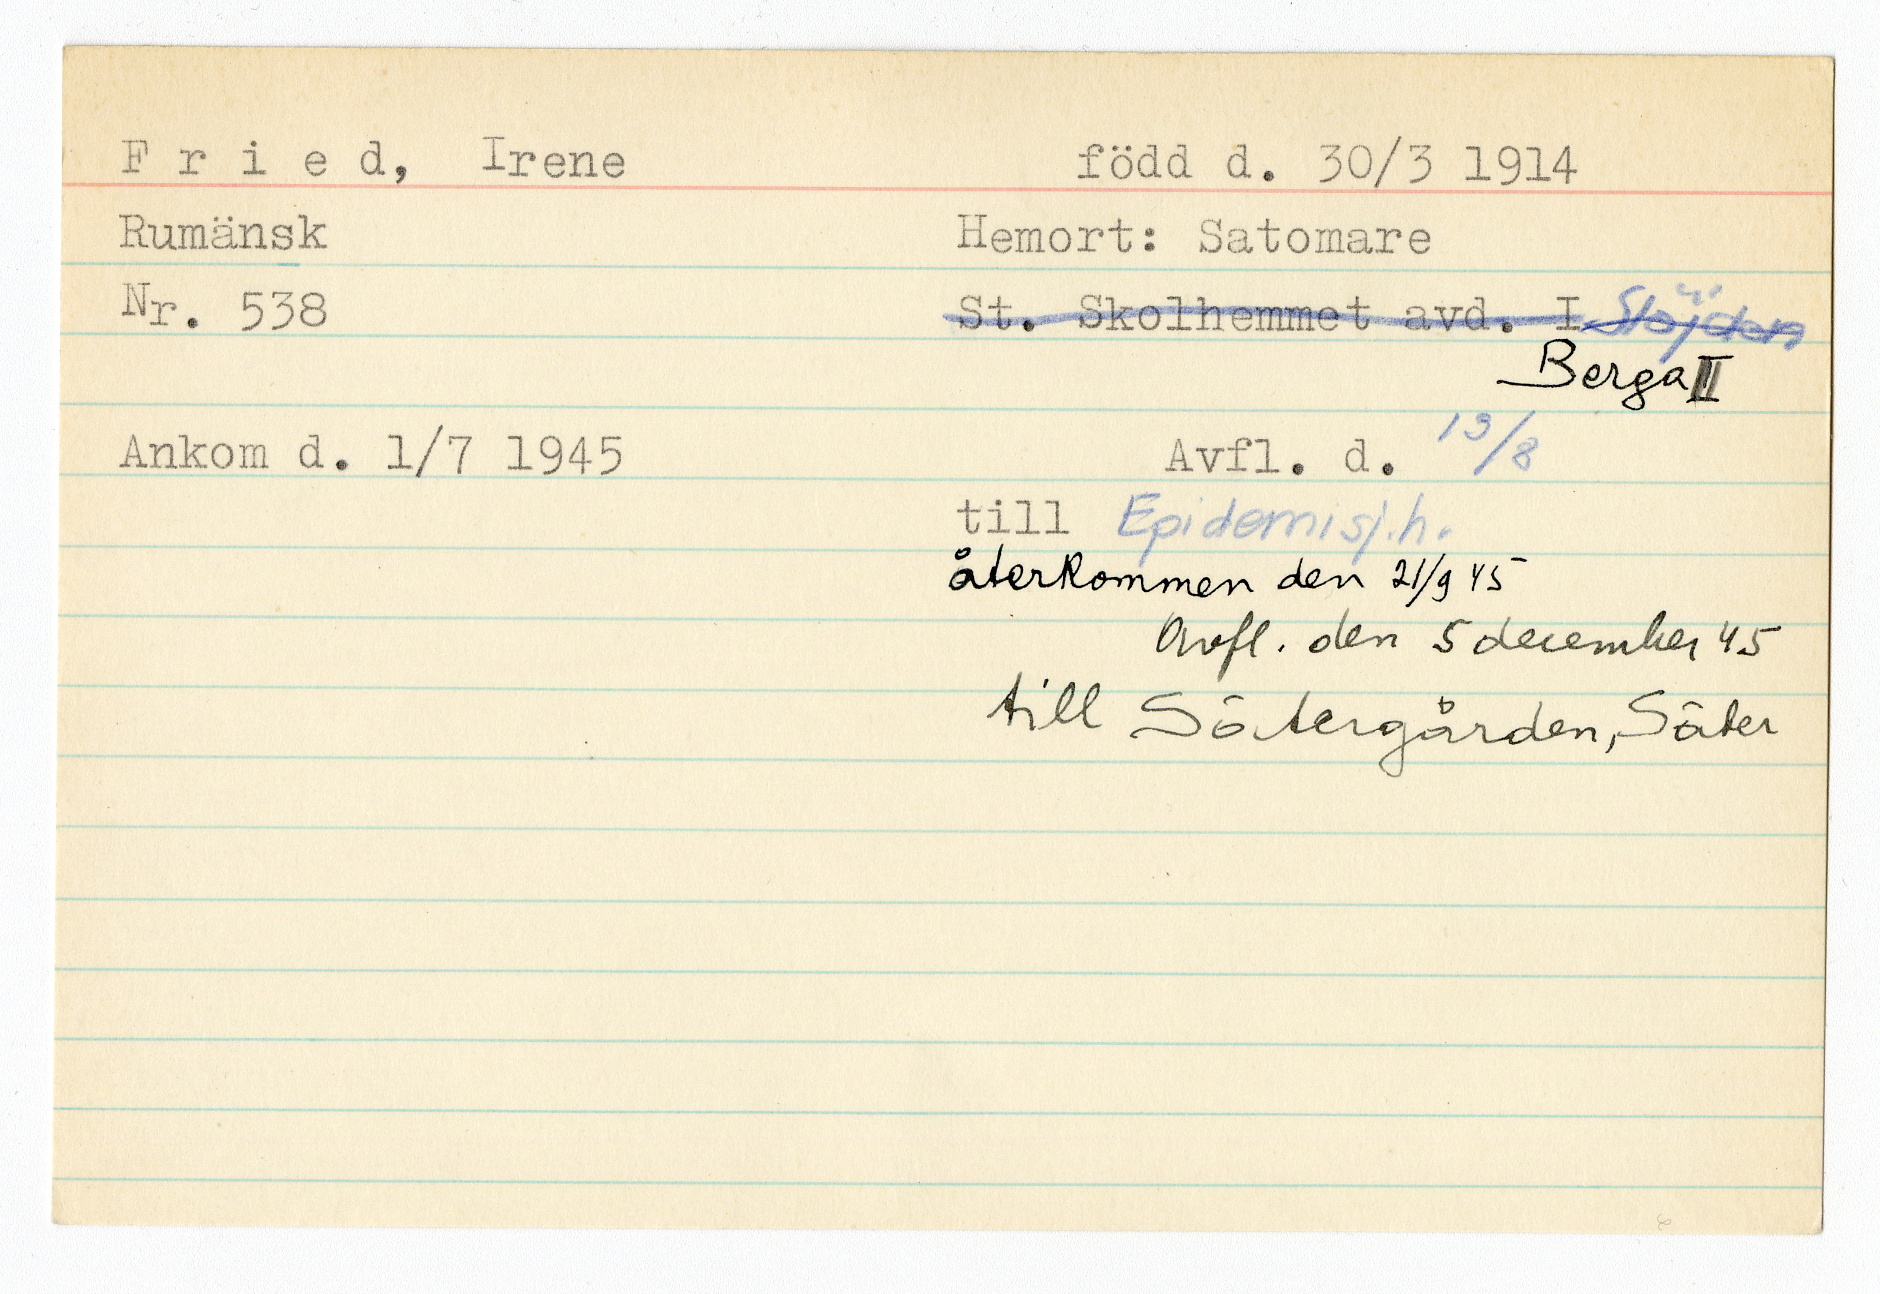 F r i e d, Irene född d. 30/3 1914
Rumänsk Hemort: Satomare
Nr. 538 St. Skolhemmet avd. I Slöjden
Berga II
Ankom d. 1/7 1945 Avfl. d. 19/8
till Epidemisj.h.
återkommen den 21/9 45
Avfl. den 5 december 45
till Sätergården, Säter